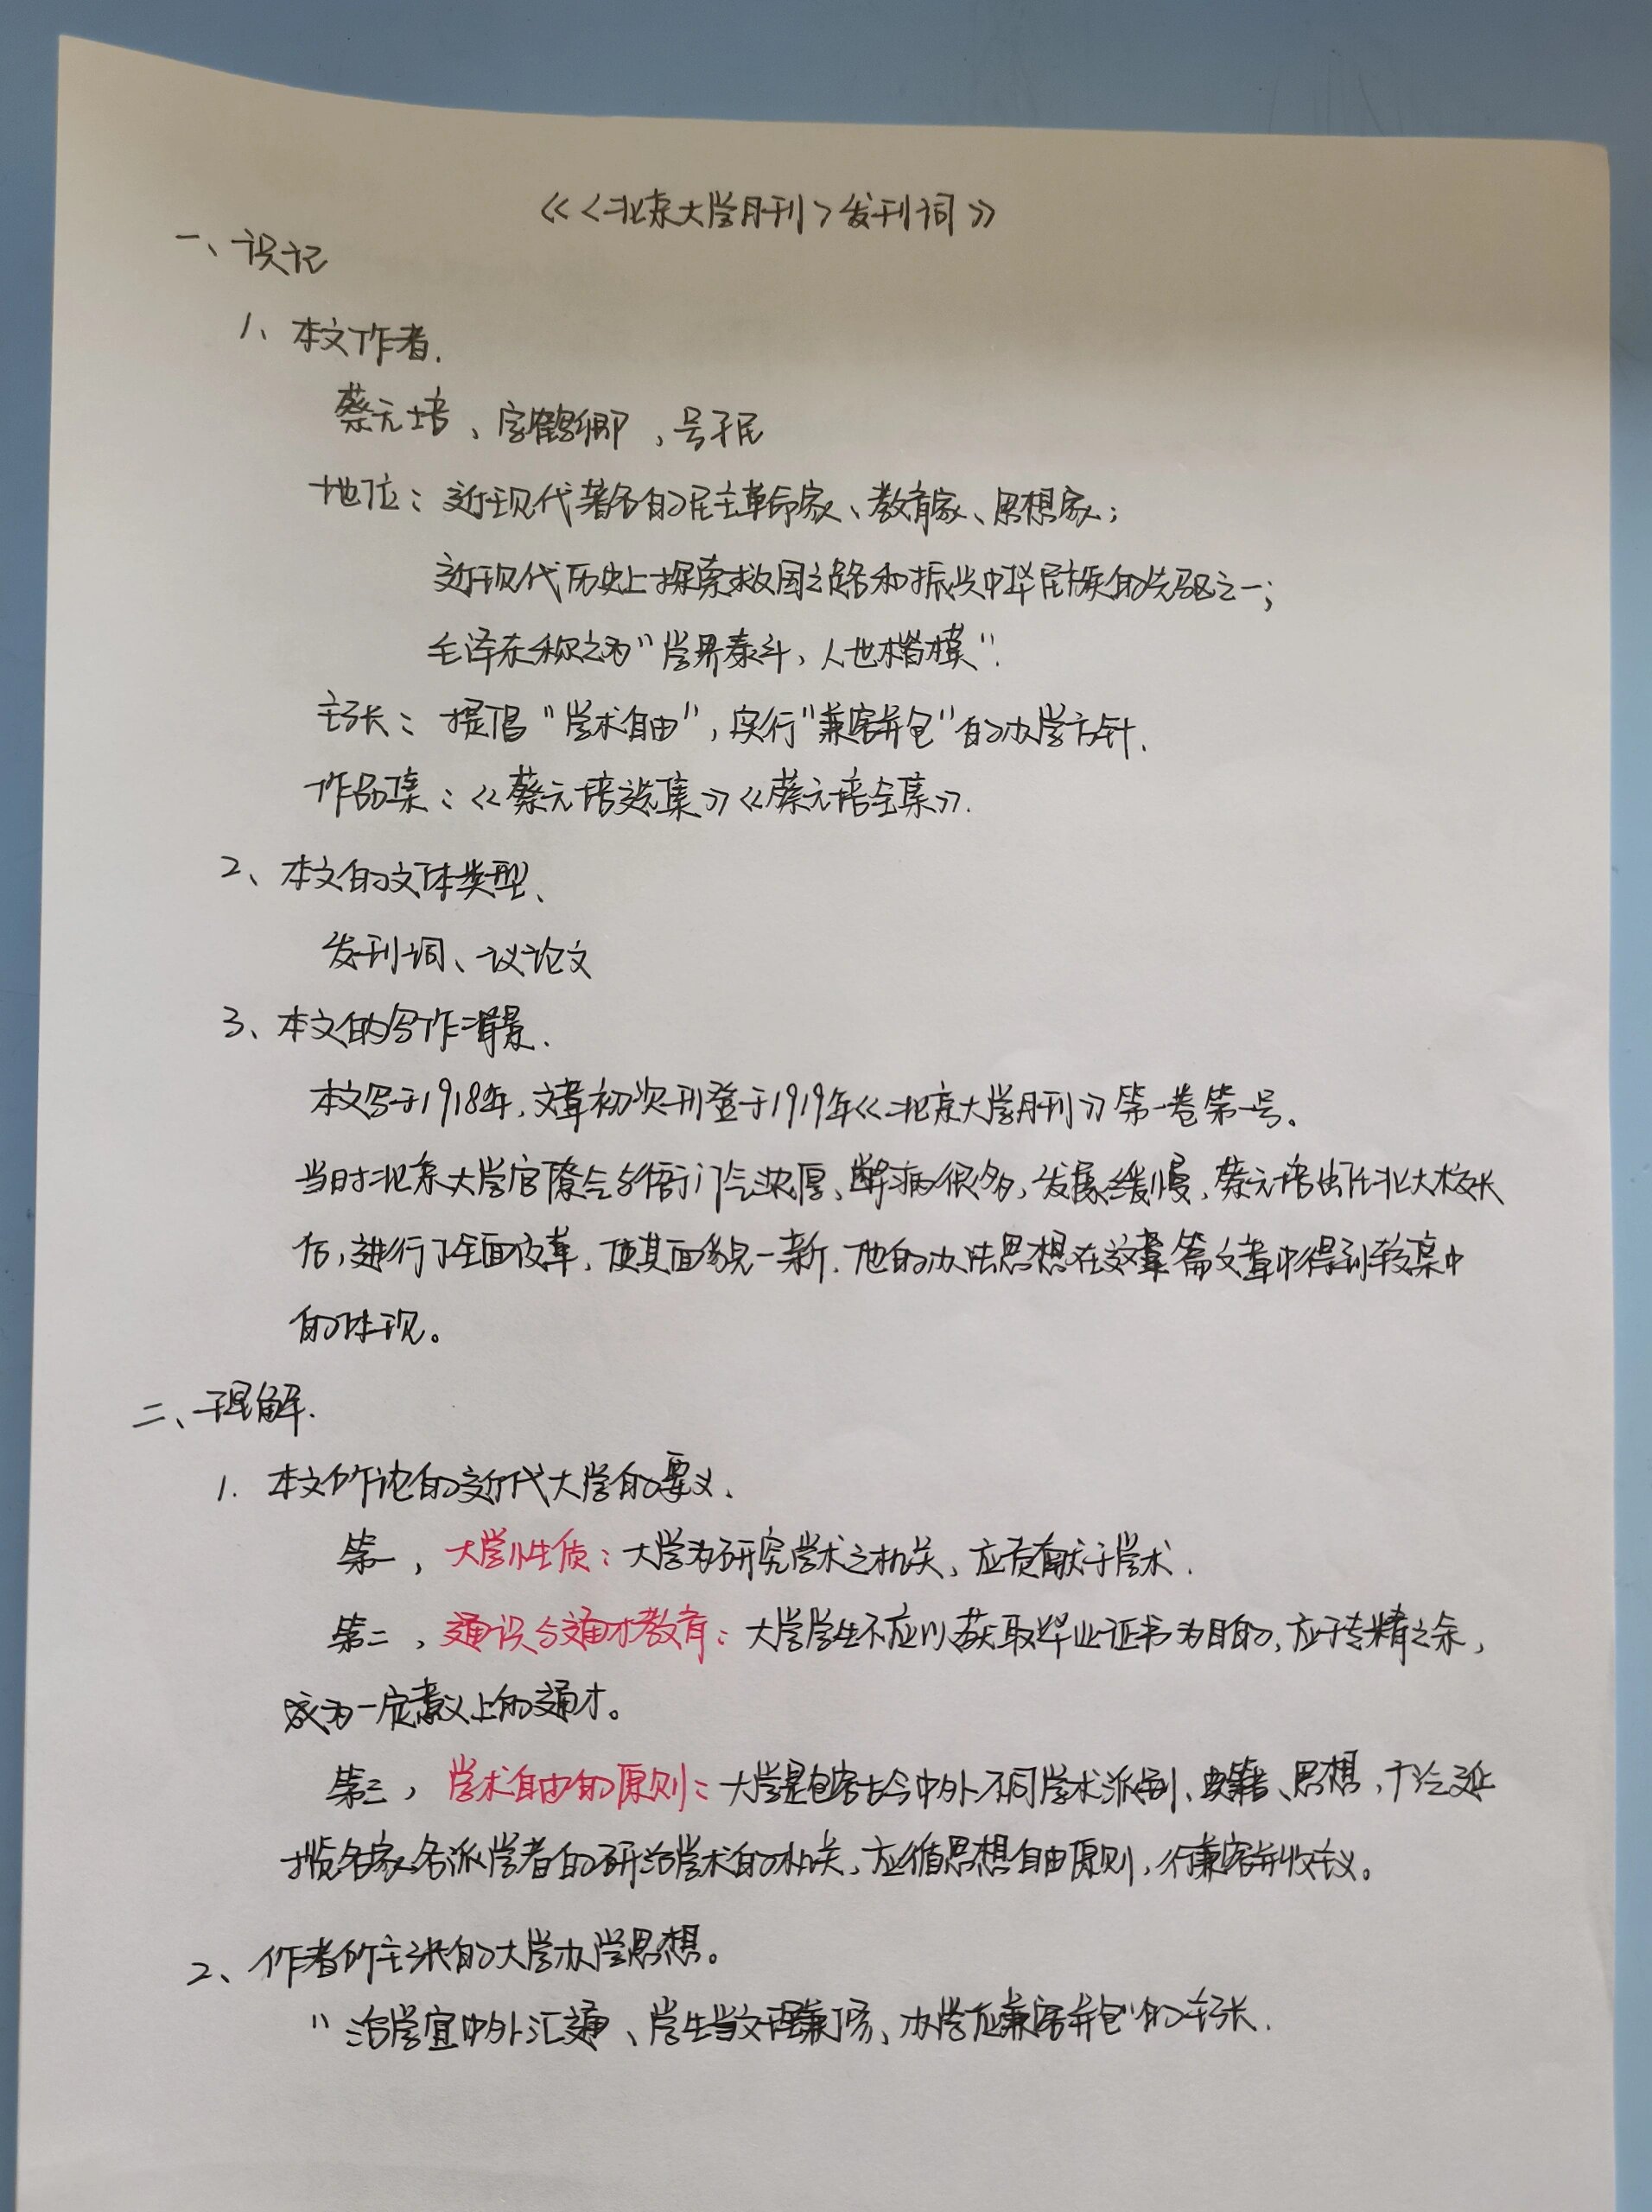 《〈北京大学月刊〉发刊词》
一、识记
1、本文作者.
蔡元培、字鹤卿,号孑民
地位:近现代著名的民主革命家、教育家、思想家;
近现代历史上探索救国之路和振兴中华民族的先驱之一;
毛泽东称之为"学界泰斗,人世楷模".
主张:提倡"学术自由",实行"兼容并包"的办学方针.
作品集:《蔡元培选集》《蔡元培全集》.
2、本文的文体类型、
发刊词、议论文
3、本文的写作背景.
本文写于1918年,文章初次刊登于1919年《北京大学月刊》第一卷第一号。
当时北京大学官僚气与衙门气浓厚、弊病很多,发展缓慢,蔡元培出任北大校长
后,进行了全面改革,使其面貌一新.他的办法思想在这篇文章中得到较集中
的体现。
二、理解.
1. 本文所论的近代大学的要义、
第一,大学性质:大学为研究学术之机关,应贡献于学术.
第二,通识与通才教育:大学学生不应以获取毕业证书为目的,应于专精之余,
成为一定意义上的通才。
第三,学术自由的原则:大学是包容古今中外不同学术派别、典籍、思想,于论延
揽名家各派学者的研治学术的机关,应循思想自由原则,行兼容并收主义。
2、作者所主张的大学办学思想。
"治学宜中外汇通、学生当文理兼修、办学应兼容并包"的主张.